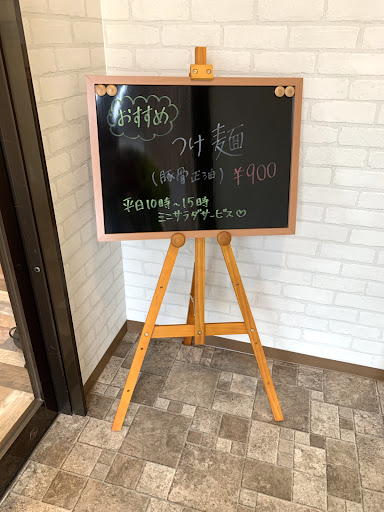 おすすめ
つけ麺
(豚骨正油) ¥900
平日10時〜15時
ミニサラダサービス♡